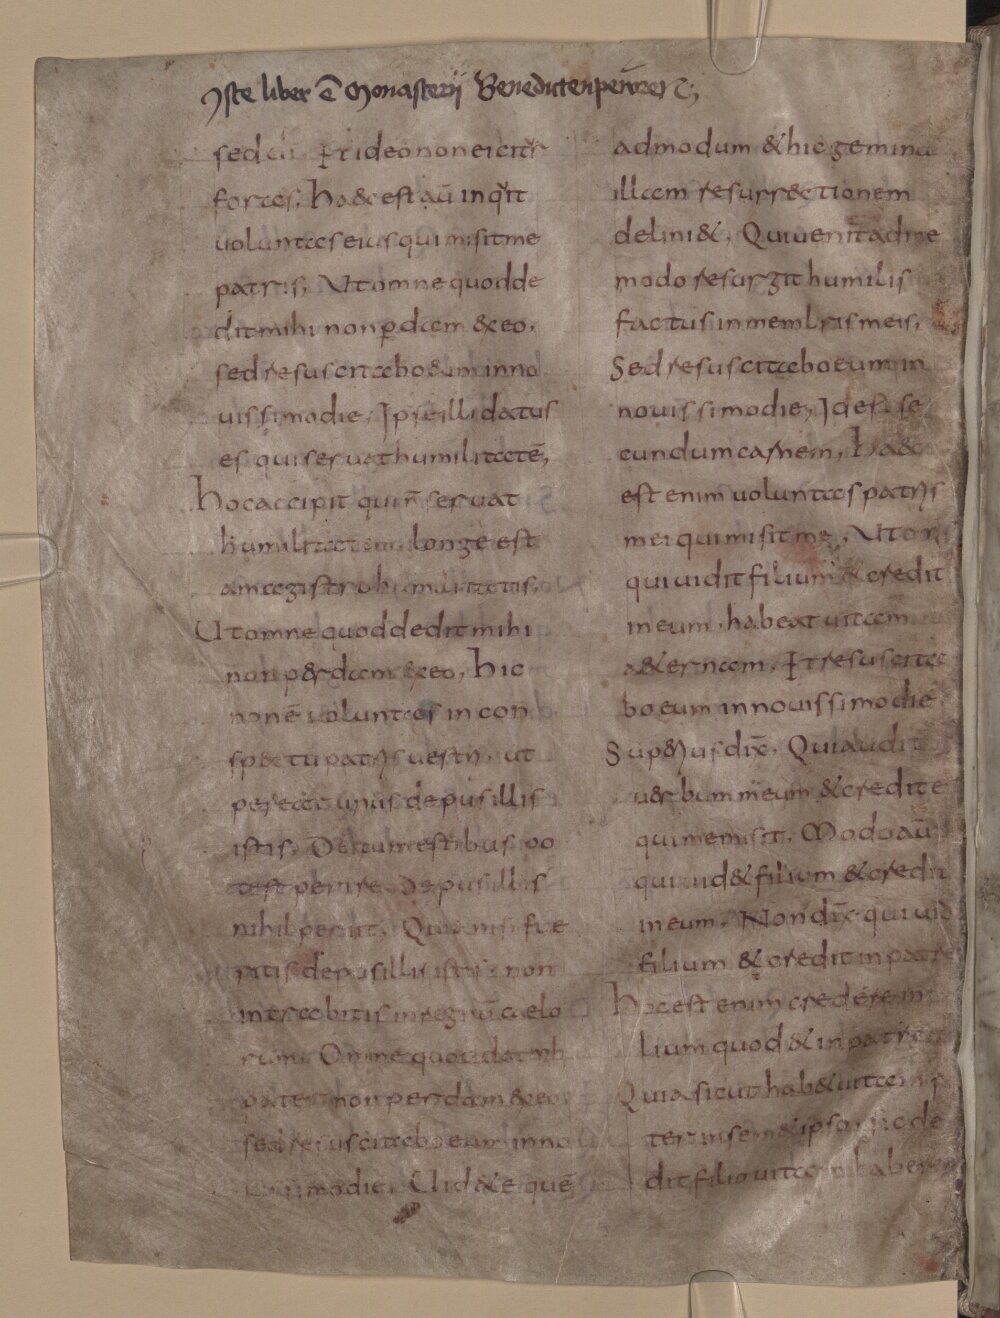 Iste liber ē Monasterij Benedictenpeuren ꝛc;
sed Et ideo non eicit᷑
foras, Haec est aū inqͥt
uoluntas eius qui misit me
patris, Ut omne quod de
dit mihi non ꝑdam & eo,
sed resuscitabo eum inno
uissimo die, Ipse illi datus
es qui seruat humilitatē,
Hoc accipit qui n̄ seruat
humilitatem longe est
a magistro humilitatis,
Ut omne quod dedit mihi
non p&rdam & eo, Hic
non ē uoluntas in con
sp&tu patris uestri, ut
pereat unus de pusillis
istis, De tumestibus po
test perire, De pusillis
nihil perit, Quia nisi fue
ritis de pusillis istis non
intrabitis in regnū caelo
rum, Omne quod dat mihi
pater non perdam & eo
sed resuscitabo eum inno
uissimo die, Uid&e quē
admodum & hic gemina
illam resurr&tionem
delini&, Qui uenit ad me
modo resurgit humilis
factus in membris meis,
Sed resuscitabo eum in
nouissimo die, Id est se
cundum carnem, Haec
est enim uoluntas patris
mei qui misit me, Ut om
qui uidit filium & credit
in eum, habeat uitam
a&ernam, Et resuscita
bo eum in nouissimo die
Superius dix̄, Qui audit
u&rbum meum & credit e
qui me misit, Modo aū
qui uid& filium & credit
in eum, Non dix̄ qui uid
filium & credit in patre
Hoc est enim credere in
lium quod & in patrem
Quia sicut hab& uitam p
ter in sem&ipso sic de
dit filio uitam habere